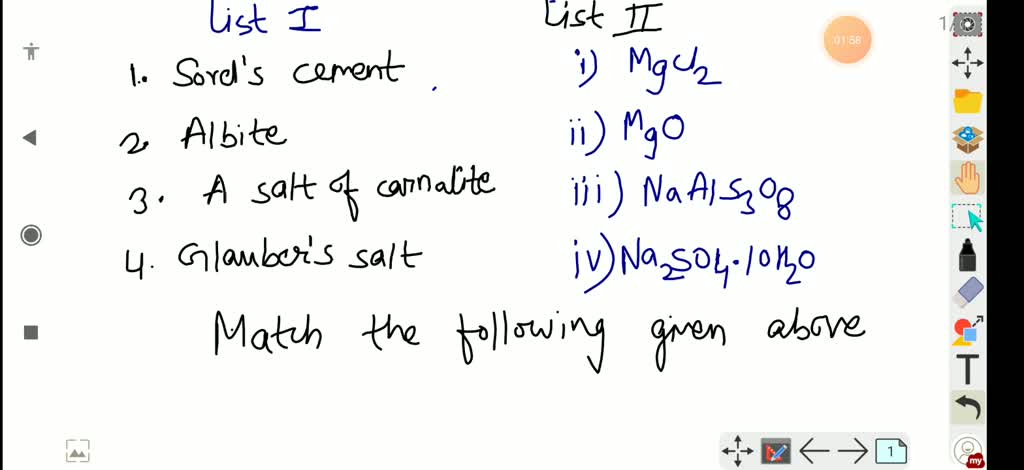 List I List II
1. Sorel's cement i) MgCl2
2. Albite ii) MgO
3. A salt of carnalite iii) NaAlS3O8
4. Glauber's salt iv) Na2SO4.10H2O
Match the following given above
01:58
1
T
my